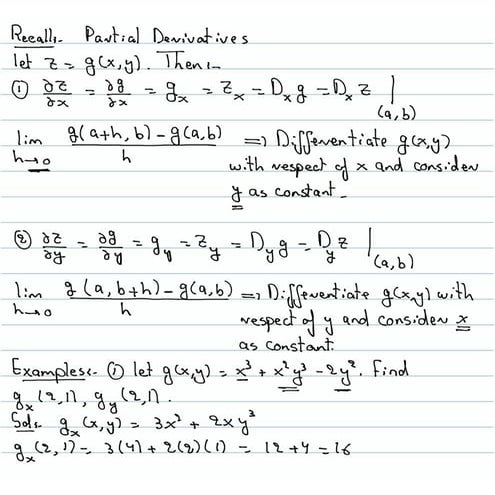 Recall:- Partial Derivatives
let z = g(x,y). Then:-
① ∂z/∂x = ∂g/∂x = g_x = z_x = D_x g = D_x z |_(a,b)
lim_(h→0) (g(a+h, b) - g(a,b))/h => Differentiate g(x,y)
with respect of x and consider
y as constant.
② ∂z/∂y = ∂g/∂y = g_y = z_y = D_y g = D_y z |_(a,b)
lim_(h→0) (g(a, b+h) - g(a,b))/h => Differentiate g(x,y) with
respect of y and consider x
as constant.
Examples:- ① let g(x,y) = x³ + x²y³ - 2y². Find
g_x(2,1), g_y(2,1).
Sol:- g_x(x,y) = 3x² + 2xy³
g_x(2,1) = 3(4) + 2(2)(1) = 12+4 = 16